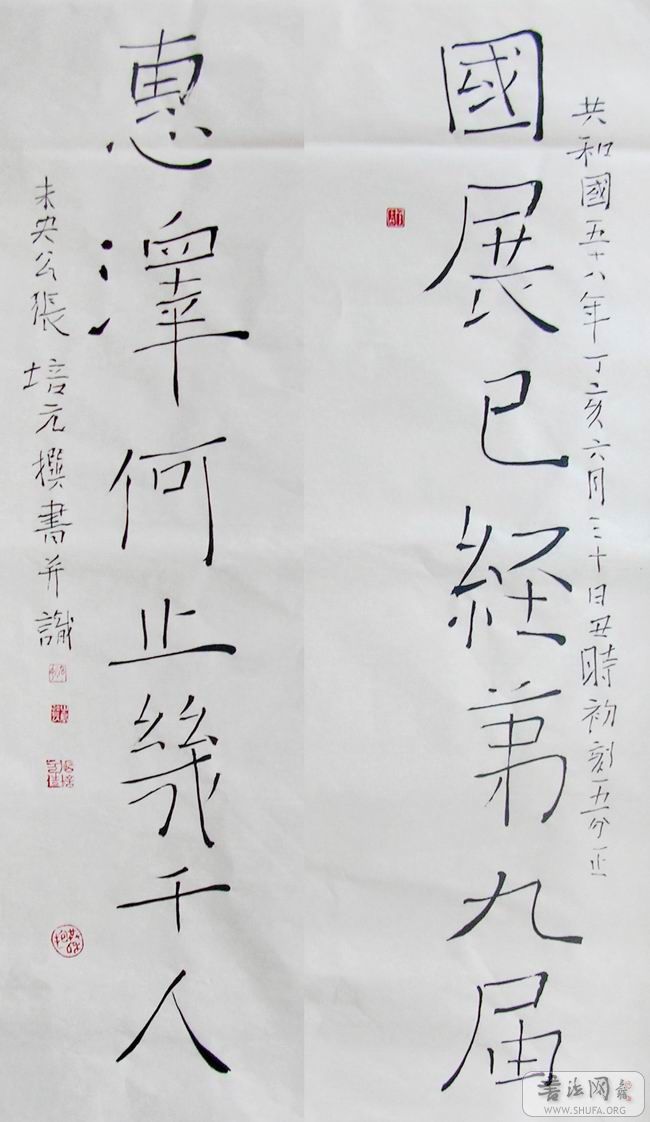 共和國五十八年丁亥六月三十日丑時初刻五分正
國展已経第九届
惠澤何止幾千人
未央公張培元撰書并識
書法网
WWW.SHUFA.ORG